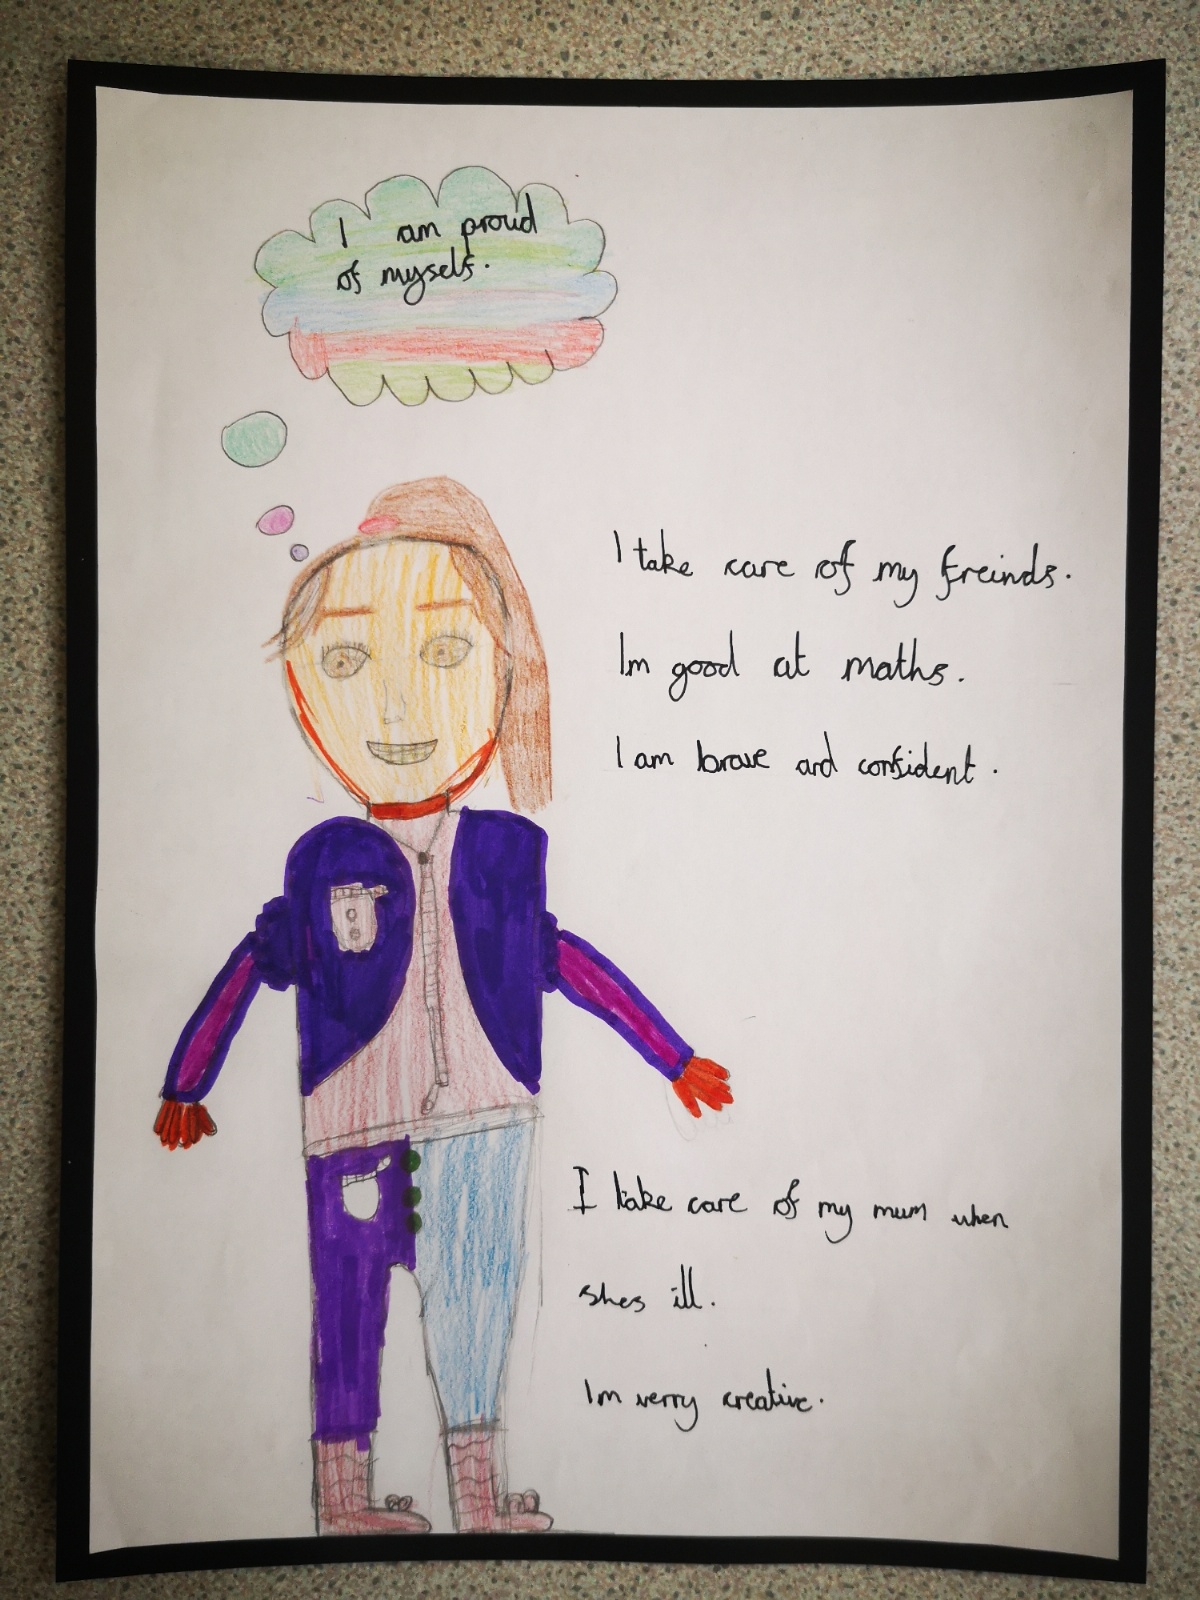 I am proud
of myself.
I take care of my freinds.
Im good at maths.
I am brave and confident.
I take care of my mum when
shes ill.
Im verry creative.